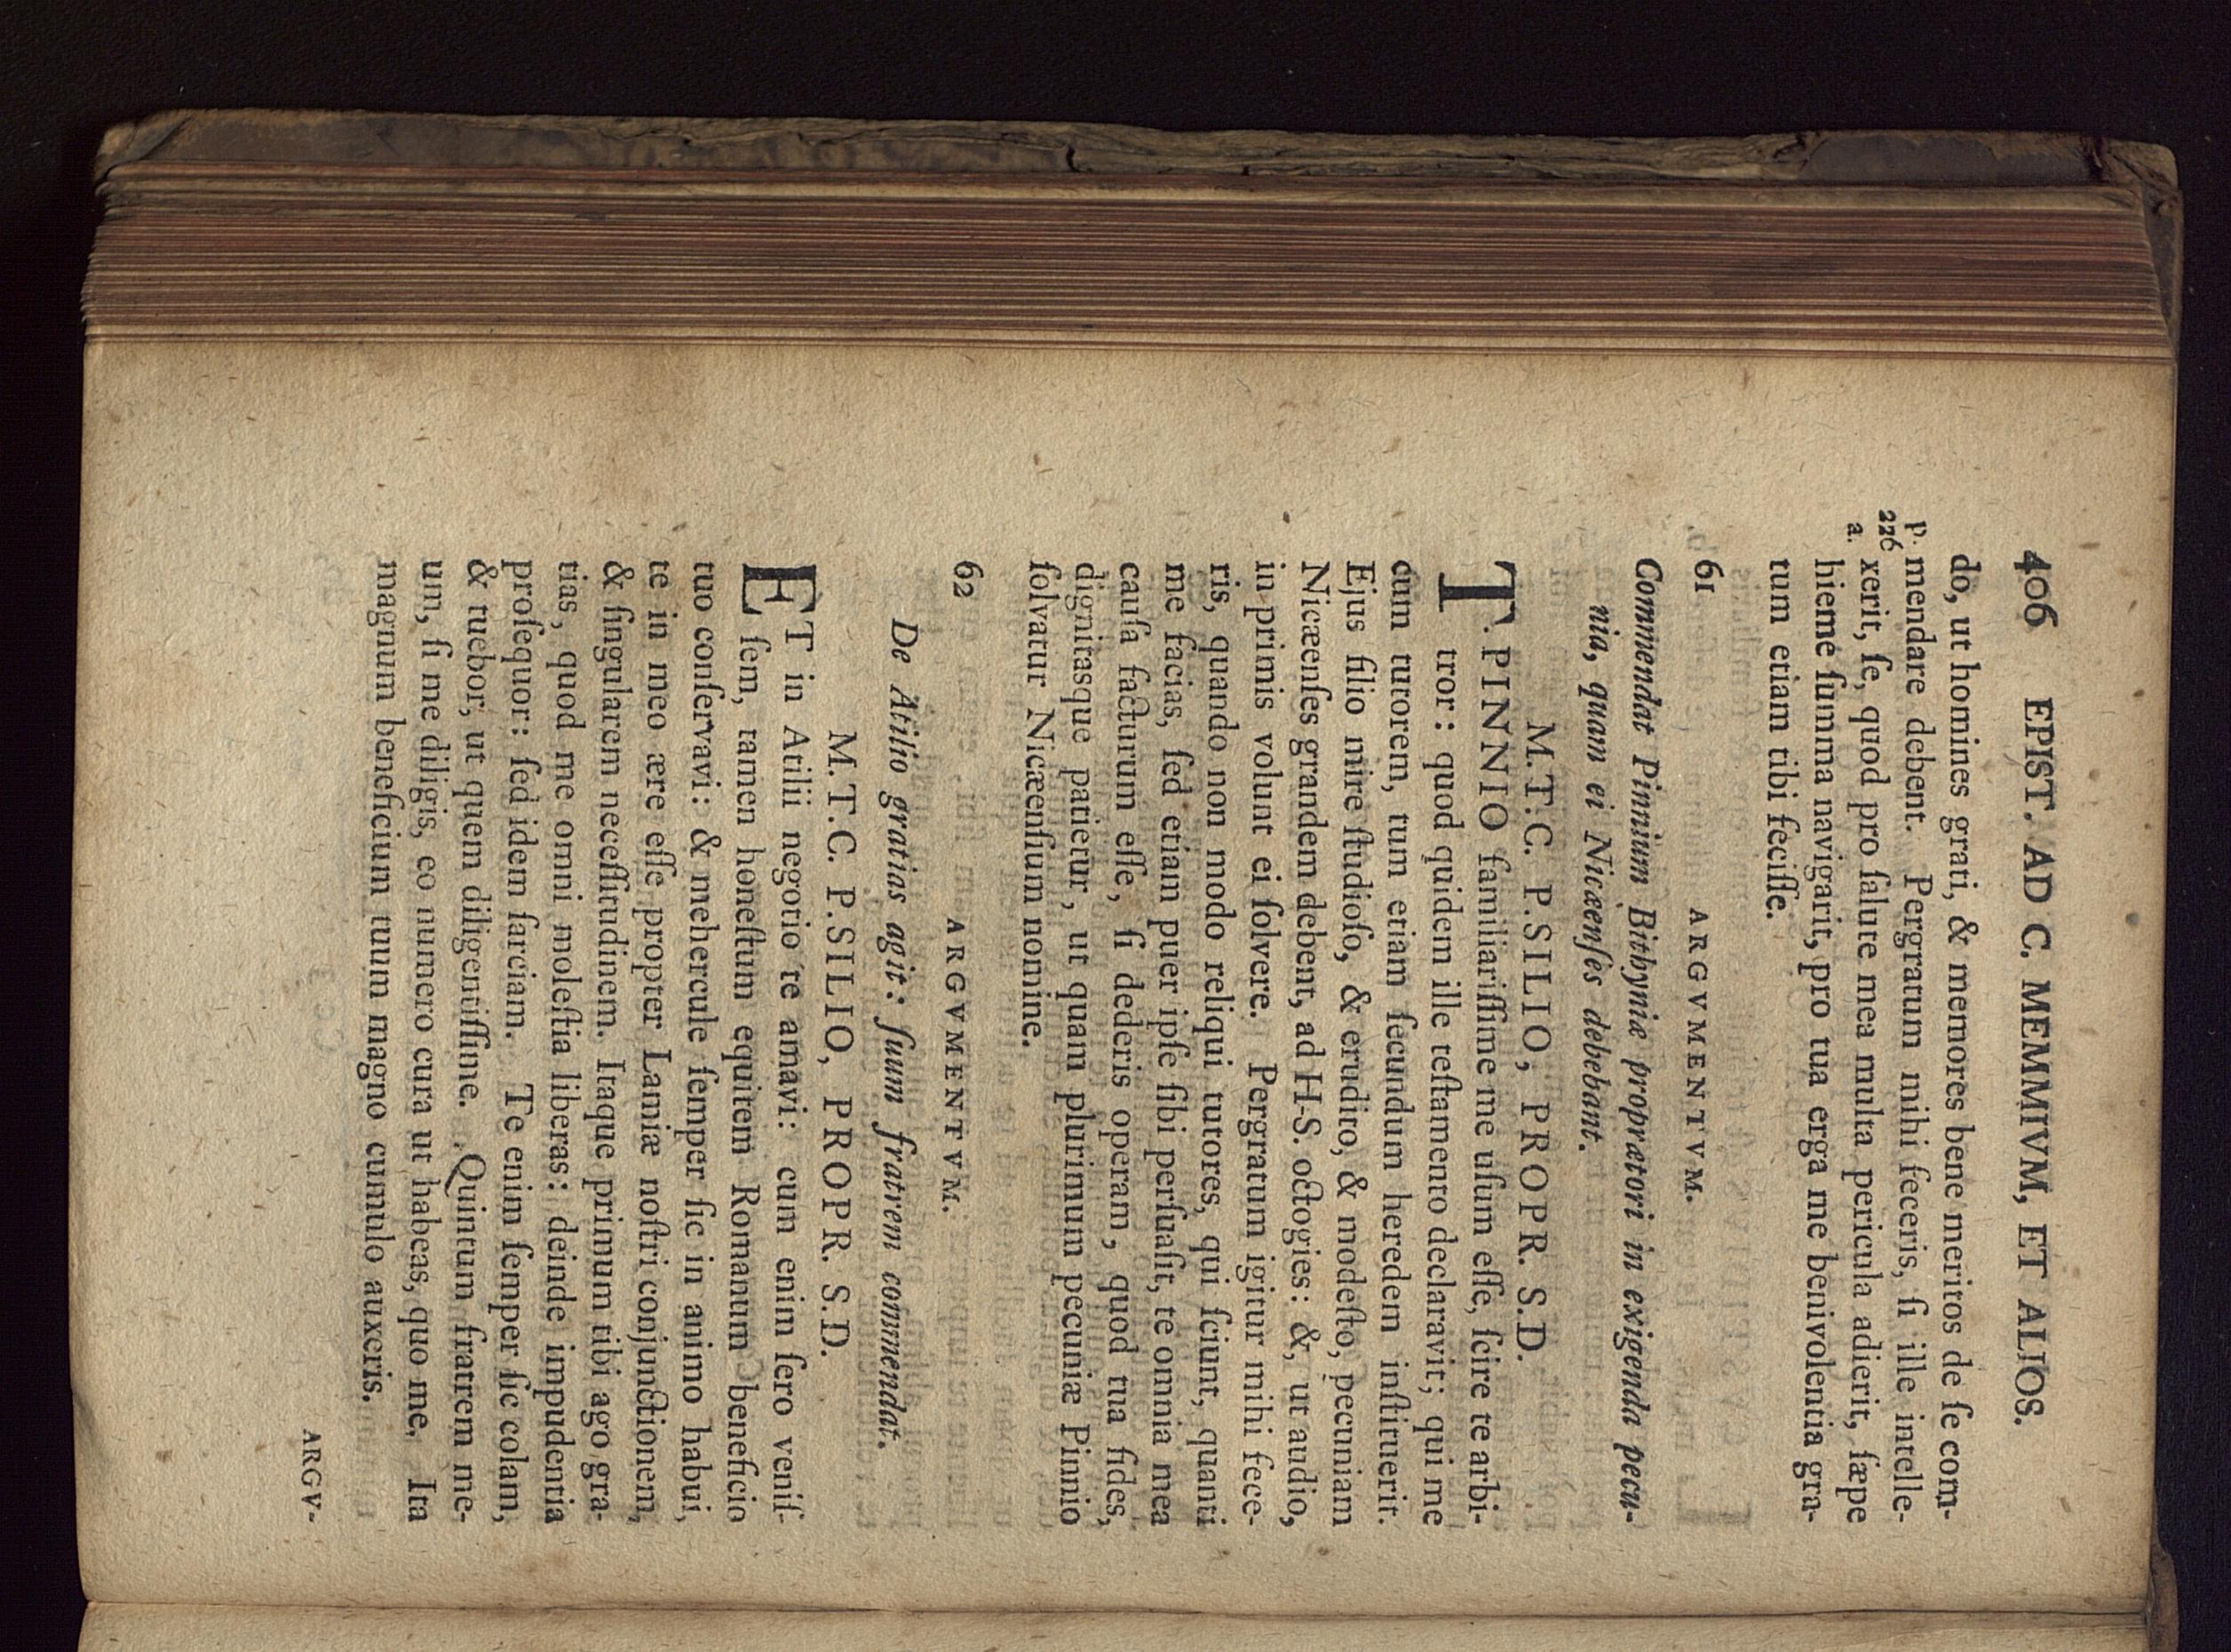 406 EPIST. AD C. MEMMIVM, ET ALIOS.
do, ut homines grati, & memores bene meritos de ſe com-
p. mendare debent. Pergratum mihi feceris, ſi ille intelle-
226 xerit, ſe, quod pro ſalute mea multa pericula adierit, ſæpe
a. hieme ſumma navigarit, pro tua erga me benivolentia gra-
tum etiam tibi feciſſe.
61 ARGVMENTVM.
Commendat Pinnium Bithyniæ proprætori in exigenda pecu-
nia, quam ei Nicæenſes debebant.
M.T.C. P.SILIO, PROPR. S.D.
T. PINNIO familiariſſime me uſum eſſe, ſcire te arbi-
tror: quod quidem ille teſtamento declaravit; qui me
cum tutorem, tum etiam ſecundum heredem inſtituerit.
Ejus filio mire ſtudioſo, & erudito, & modeſto, pecuniam
Nicæenſes grandem debent, ad H-S. octogies: &, ut audio,
in primis volunt ei ſolvere. Pergratum igitur mihi fece-
ris, quando non modo reliqui tutores, qui ſciunt, quanti
me facias, ſed etiam puer ipſe ſibi perſuaſit, te omnia mea
cauſa facturum eſſe, ſi dederis operam, quod tua fides,
dignitasque patietur, ut quam plurimum pecuniæ Pinnio
ſolvatur Nicæenſium nomine.
62 ARGVMENTVM.
De Atilio gratias agit: ſuum fratrem commendat.
M.T.C. P.SILIO, PROPR. S.D.
ET in Atilii negotio te amavi: cum enim ſero veniſ-
ſem, tamen honeſtum equitem Romanum beneficio
tuo conſervavi: & mehercule ſemper ſic in animo habui,
te in meo ære eſſe propter Lamiæ noſtri conjunctionem,
& ſingularem neceſſitudinem. Itaque primum tibi ago gra-
tias, quod me omni moleſtia liberas: deinde impudentia
proſequor: ſed idem ſarciam. Te enim ſemper ſic colam,
& tuebor, ut quem diligentiſſime. Quintum fratrem me-
um, ſi me diligis, eo numero cura ut habeas, quo me. Ita
magnum beneficium tuum magno cumulo auxeris.
ARGV-